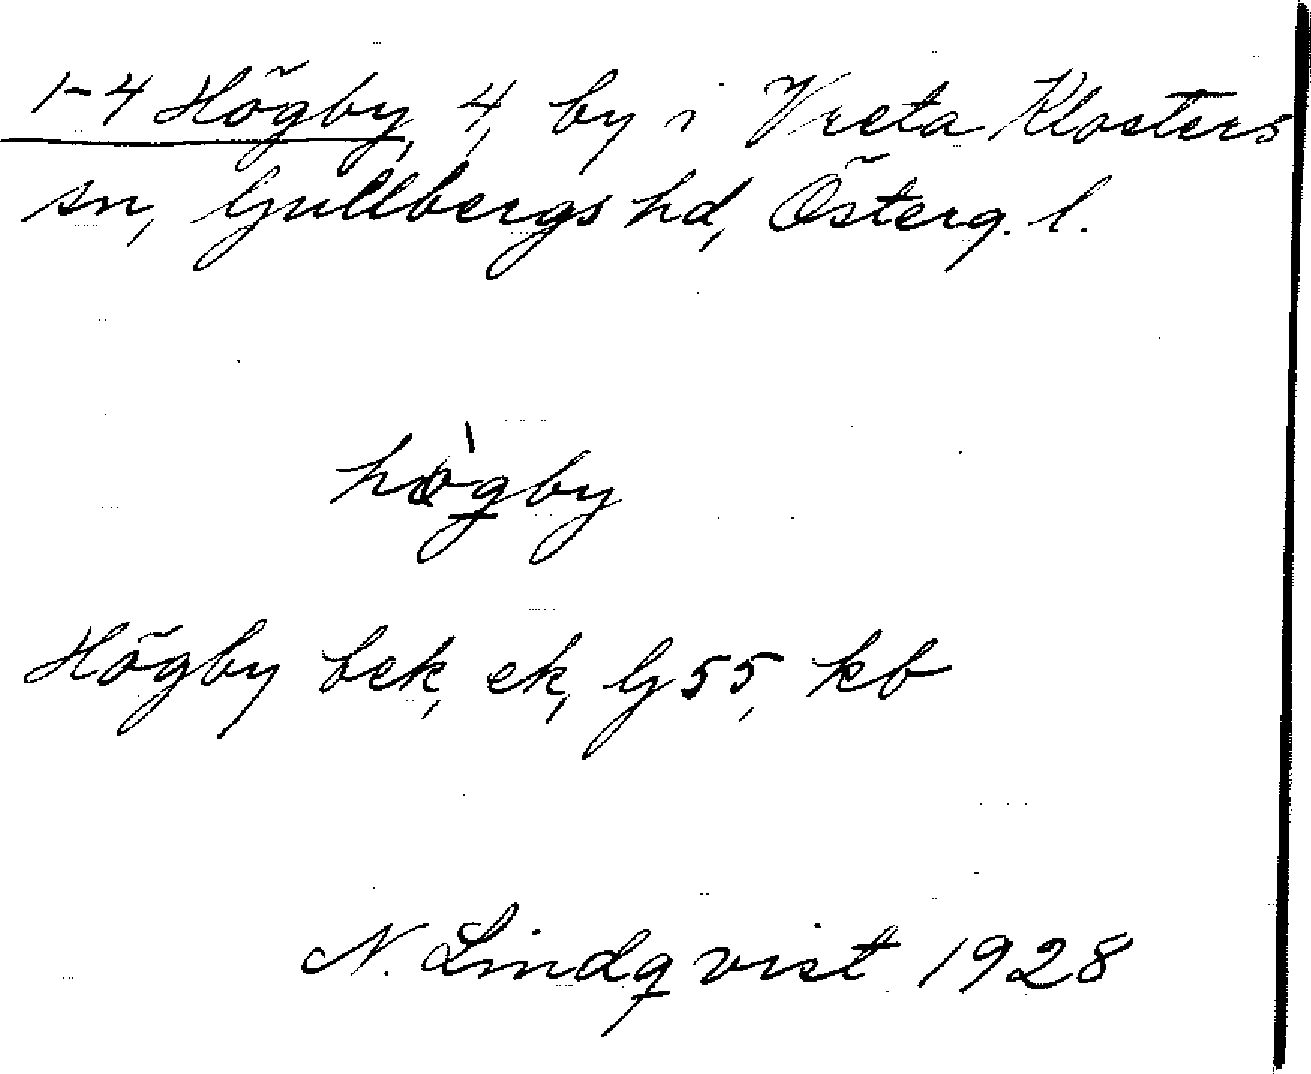 1-4 Högby, 4, by i Vreta Klosters
sn, Gullbergs hd, Österg. l.
högby
Högby bek, ek, G55, kb
N. Lindqvist 1928